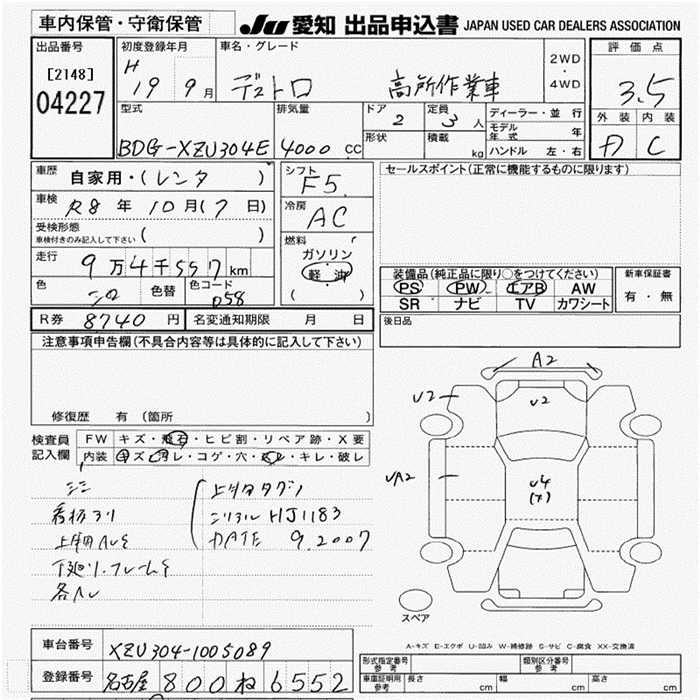 車内保管・守衛保管
JU 愛知 出品申込書 JAPAN USED CAR DEALERS ASSOCIATION
出品番号
[2148]
04227
初度登録年月
H 19 9月
車名・グレード
デュトロ 高所作業車
2WD
・
4WD
評価点
3.5
外装 内装
D C
型式
BDG-XZU304E
排気量
4000 CC
ドア
2
形状
定員
3人
積載
kg
ディーラー・並行
モデル年式 年
ハンドル 左・右
車歴
自家用・(レンタ )
車検
R8年 10月(7日)
受検形態
車検付きのみ記入して下さい ( )
走行
9万4千557km
色
シロ
色替
色コード
058
シフト
F5
冷房
AC
燃料
ガソリン
軽油
( )
セールスポイント(正常に機能するものに限ります)
装備品(純正品に限り○をつけてください)
PS PW エアB AW
SR ナビ TV カワシート
新車保証書
有・無
R券 8740円
名変通知期限 月 日
後日品
注意事項申告欄(不具合内容等は具体的に記入して下さい)
修復歴 有(箇所
検査員
記入欄
FW キズ・飛石・ヒビ割・リペア跡・X要
内装 キズ・ヨゴレ・コゲ・穴・スレ・キレ・破レ
看板ヨリ
下廻り、フレームモ
各ハレ
上物タグノ
シリアル HJ1183
DATE 9.2007
A2
U2
U2
UA2
U4
スペア
A-キズ E-エクボ U-凹み W-補修跡 S-サビ C-腐食 XX-交換済
車台番号 XZU304-1005089
登録番号 名古屋 800 ね 6552
形式指定番号
参考
類別区分番号
参考
車庫証明用
参考
長さ cm
幅 cm
高さ cm